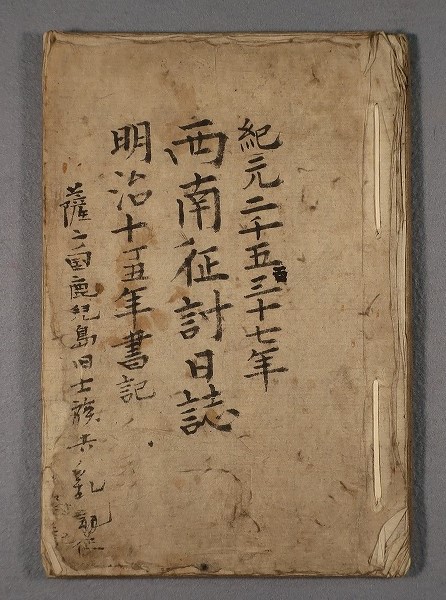 紀元二千五百三十七年
西南征討日誌
明治十丁丑年書記
薩ノ国鹿児島旧士族共ノ乱